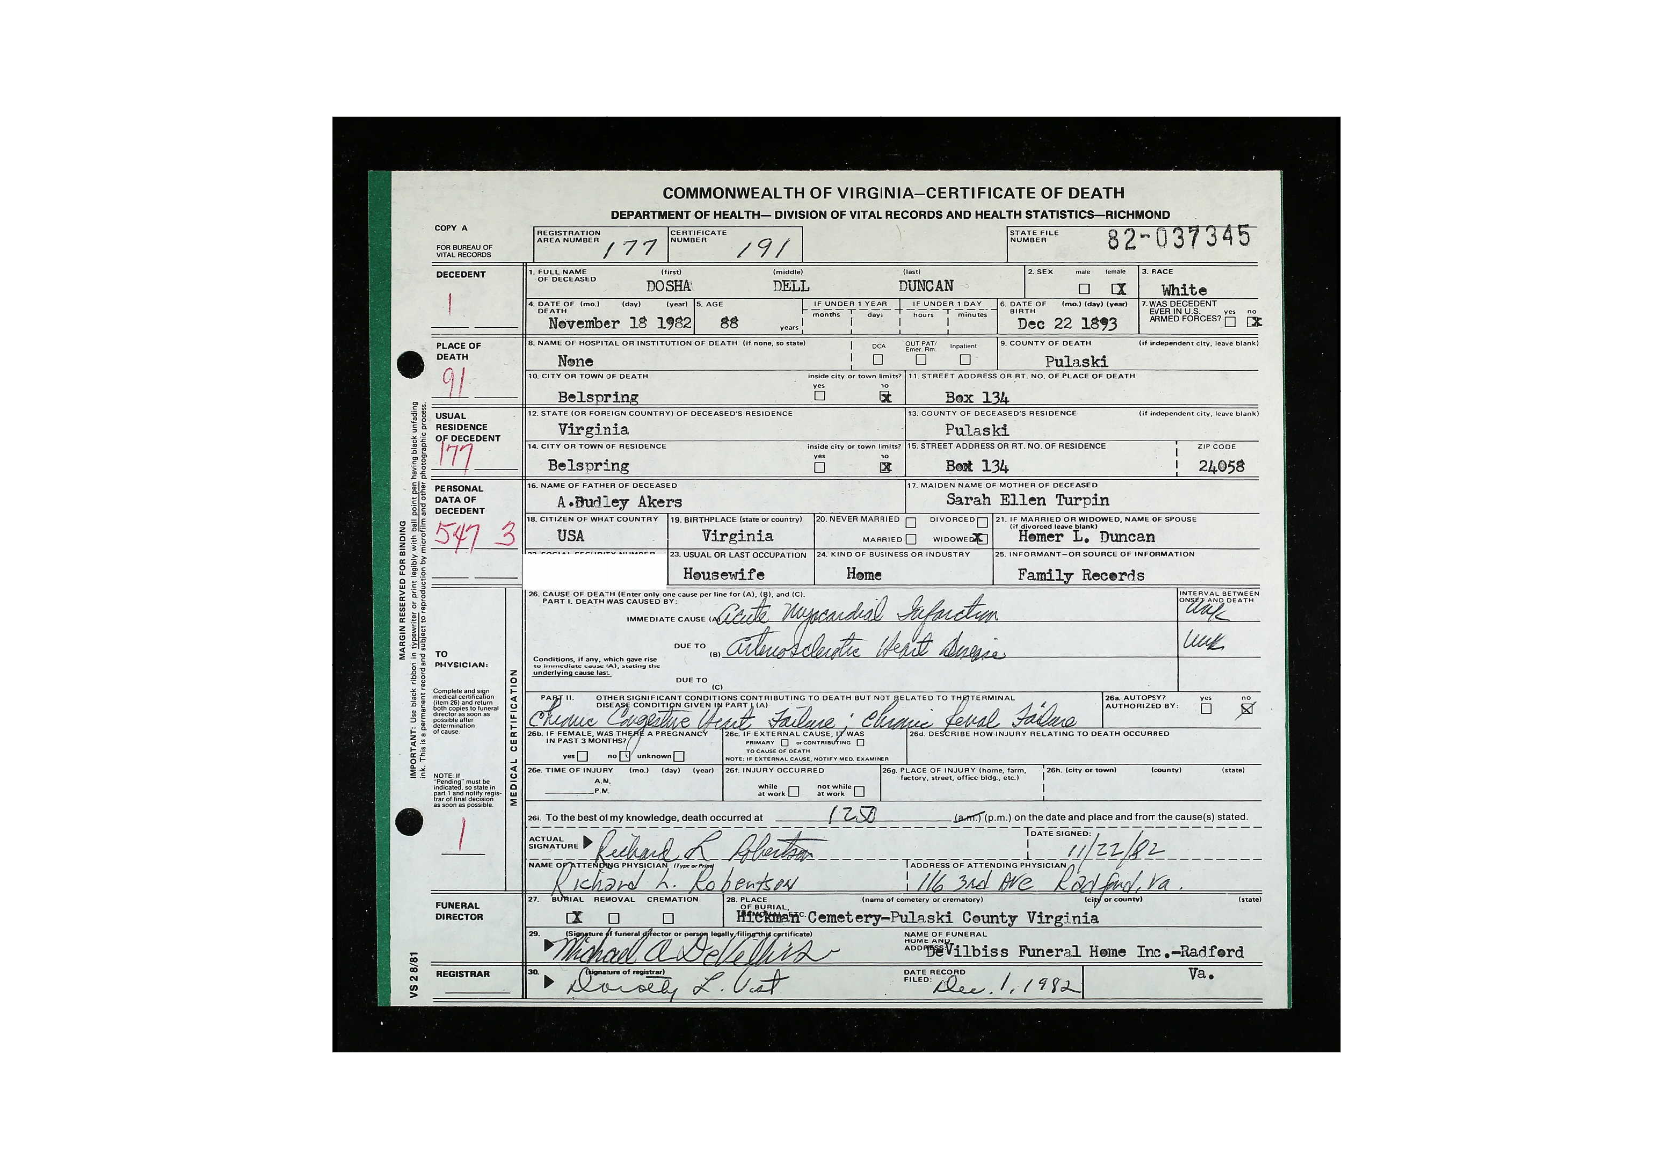 COMMONWEALTH OF VIRGINIA—CERTIFICATE OF DEATH
DEPARTMENT OF HEALTH— DIVISION OF VITAL RECORDS AND HEALTH STATISTICS—RICHMOND
COPY A
FOR BUREAU OF VITAL RECORDS
REGISTRATION AREA NUMBER 177 CERTIFICATE NUMBER 191 STATE FILE NUMBER 82-037345
DECEDENT
1
1. FULL NAME OF DECEASED (first) (middle) (last) 2. SEX male female 3. RACE
DOSHA DELL DUNCAN X White
4. DATE OF DEATH (mo.) (day) (year) 5. AGE years IF UNDER 1 YEAR months days IF UNDER 1 DAY hours minutes 6. DATE OF BIRTH (mo.) (day) (year) 7. WAS DECEDENT EVER IN U.S. ARMED FORCES? yes no
November 18 1982 88 Dec 22 1893 X
PLACE OF DEATH
91
8. NAME OF HOSPITAL OR INSTITUTION OF DEATH (if none, so state) DOA OUT PAT/ Emer. Rm. Inpatient 9. COUNTY OF DEATH (if independent city, leave blank)
None Pulaski
10. CITY OR TOWN OF DEATH inside city or town limits? yes no 11. STREET ADDRESS OR RT. NO. OF PLACE OF DEATH
Belspring X Box 134
USUAL RESIDENCE OF DECEDENT
177
12. STATE (OR FOREIGN COUNTRY) OF DECEASED'S RESIDENCE 13. COUNTY OF DECEASED'S RESIDENCE (if independent city, leave blank)
Virginia Pulaski
14. CITY OR TOWN OF RESIDENCE inside city or town limits? yes no 15. STREET ADDRESS OR RT. NO. OF RESIDENCE ZIP CODE
Belspring X Box 134 24058
PERSONAL DATA OF DECEDENT
547 3
16. NAME OF FATHER OF DECEASED 17. MAIDEN NAME OF MOTHER OF DECEASED
A.Dudley Akers Sarah Ellen Turpin
18. CITIZEN OF WHAT COUNTRY 19. BIRTHPLACE (state or country) 20. NEVER MARRIED DIVORCED MARRIED WIDOWED 21. IF MARRIED OR WIDOWED, NAME OF SPOUSE (if divorced leave blank)
USA Virginia X Homer L. Duncan
23. USUAL OR LAST OCCUPATION 24. KIND OF BUSINESS OR INDUSTRY 25. INFORMANT—OR SOURCE OF INFORMATION
Housewife Home Family Records
MARGIN RESERVED FOR BINDING
IMPORTANT: Use black ribbon in typewriter or print legibly with ball point pen having black unfading ink. This is a permanent record and subject to reproduction by microfilm and other photographic process.
TO PHYSICIAN:
Complete and sign medical certification (item 26) and return both copies to funeral director as soon as possible after determination of cause.
NOTE: If "Pending" must be indicated, so state in part 1 and notify registrar of final decision as soon as possible.
1
MEDICAL CERTIFICATION
26. CAUSE OF DEATH (Enter only one cause per line for (A), (B), and (C). INTERVAL BETWEEN ONSET AND DEATH
PART I. DEATH WAS CAUSED BY:
IMMEDIATE CAUSE (A) Acute Myocardial Infarction unk
DUE TO (B) Arteriosclerotic Heart Disease unk
Conditions, if any, which gave rise to immediate cause (A), stating the underlying cause last.
DUE TO (C)
PART II. OTHER SIGNIFICANT CONDITIONS CONTRIBUTING TO DEATH BUT NOT RELATED TO THE TERMINAL DISEASE CONDITION GIVEN IN PART I (A) 26a. AUTOPSY? AUTHORIZED BY: yes no
Chronic Congestive Heart Failure; Chronic Renal Failure X
26b. IF FEMALE, WAS THERE A PREGNANCY IN PAST 3 MONTHS? yes no unknown
26c. IF EXTERNAL CAUSE, IT WAS PRIMARY or CONTRIBUTING TO CAUSE OF DEATH
NOTE: IF EXTERNAL CAUSE, NOTIFY MED. EXAMINER
26d. DESCRIBE HOW INJURY RELATING TO DEATH OCCURRED
26e. TIME OF INJURY (mo.) (day) (year) A.M. P.M.
26f. INJURY OCCURRED while at work not while at work
26g. PLACE OF INJURY (home, farm, factory, street, office bldg., etc.)
26h. (city or town) (county) (state)
26i. To the best of my knowledge, death occurred at 1250 (a.m.) (p.m.) on the date and place and from the cause(s) stated.
ACTUAL SIGNATURE Richard L Robertson DATE SIGNED: 11/22/82
NAME OF ATTENDING PHYSICIAN (Type or Print) ADDRESS OF ATTENDING PHYSICIAN
Richard L. Robertson 116 3rd Ave Radford, Va.
FUNERAL DIRECTOR
27. BURIAL REMOVAL CREMATION 28. PLACE OF BURIAL, ETC. (name of cemetery or crematory) (city or county) (state)
X Hickman Cemetery-Pulaski County Virginia
29. (Signature of funeral director or person legally filing this certificate) NAME OF FUNERAL HOME AND ADDRESS
Michael A DeVilbiss DeVilbiss Funeral Home Inc.-Radford
Va.
REGISTRAR
30. (signature of registrar) DATE RECORD FILED:
Dorothy L. Dec. 1, 1982
VS 2 8/81